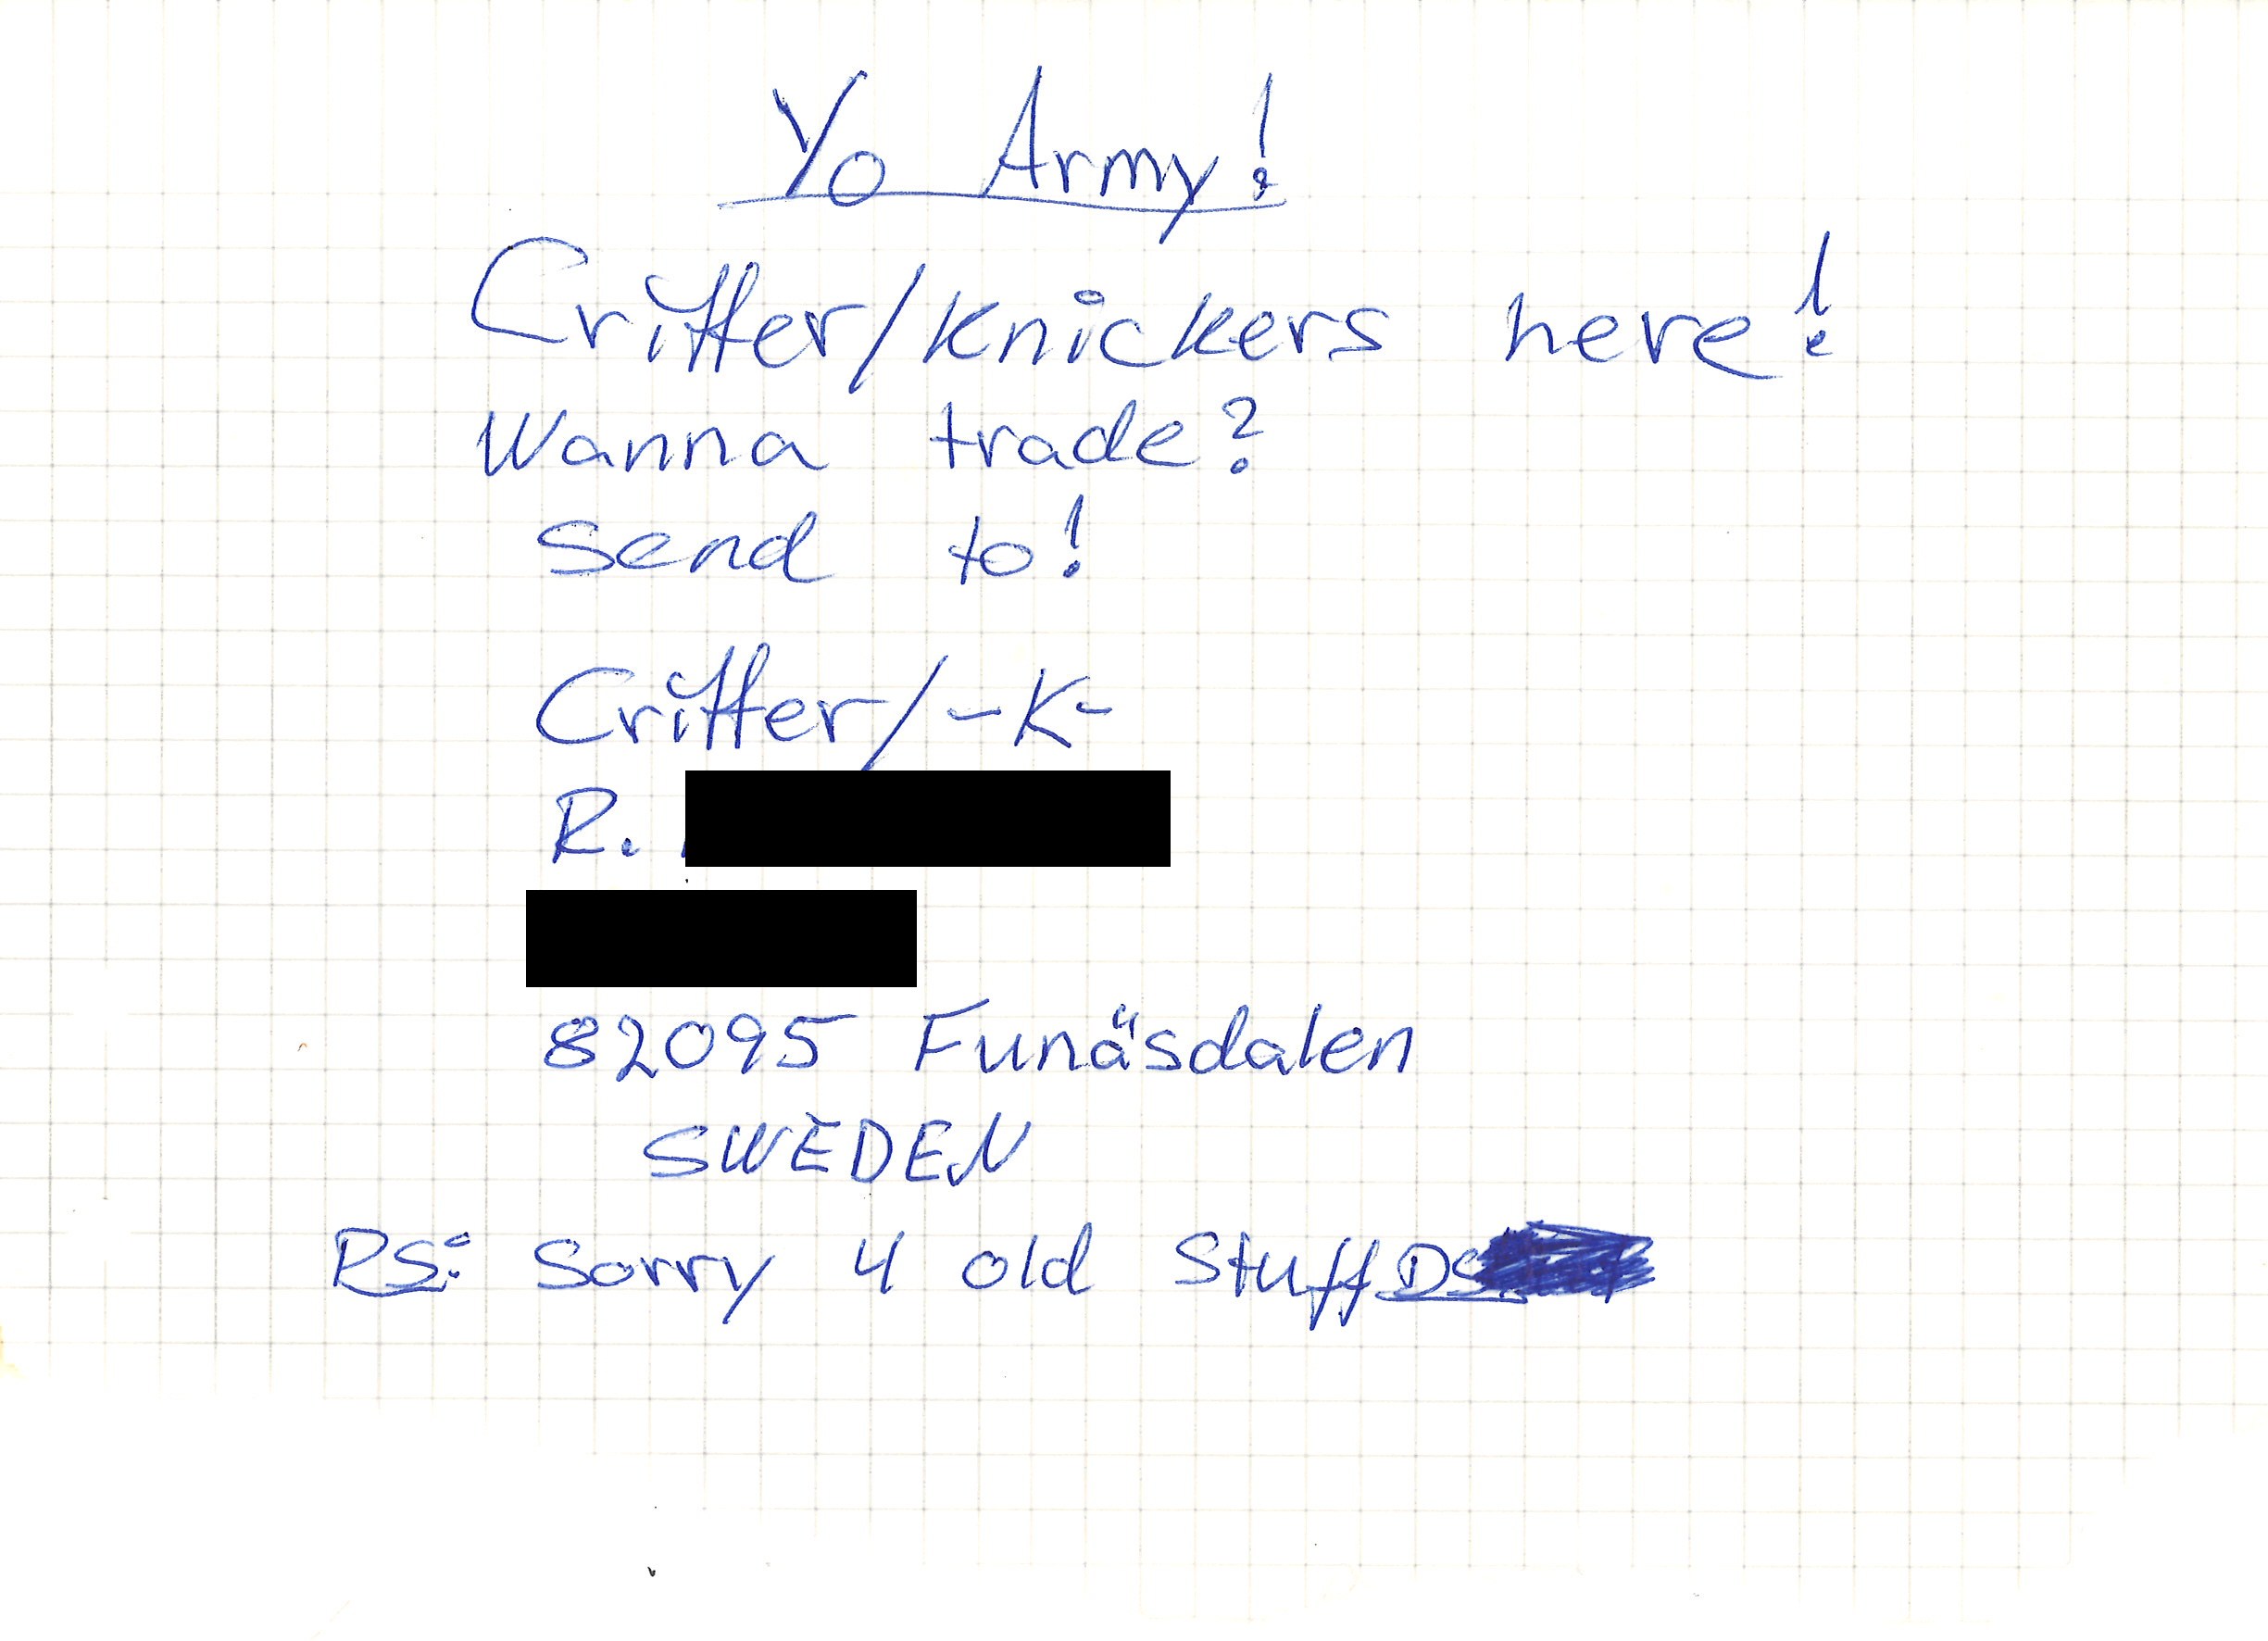 Yo Army!
Critter/Knickers here!
Wanna trade?
Send to!
Critter/-K-
R.
82095 Funäsdalen
SWEDEN
PS: Sorry 4 old stuff DS